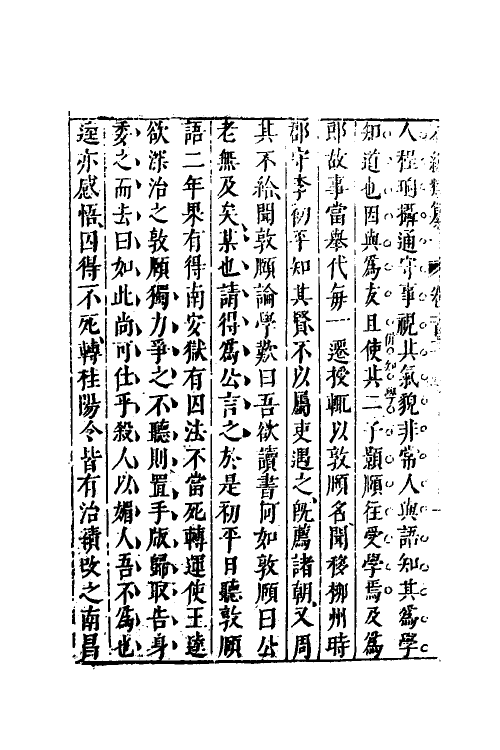 人程珦攝通守事視其氣貌非常人與語知其爲學
知道也因與爲友且使其二子顥頤往受學焉及爲
郎故事當舉代每一遷授輒以敦頤名聞移郴州時
郡守李初平知其賢不以屬吏遇之旣薦諸朝又周
其不給聞敦頤論學歎曰吾欲讀書何如敦頤曰公
老無及矣某也請得爲公言之於是初平日聽敦頤
語二年果有得南安獄有囚法不當死轉運使王逵
欲深治之敦頤獨力爭之不聽則置手版歸取告身
委之而去曰如此尚可仕乎殺人以媚人吾不爲也
逵亦感悟囚得不死轉桂陽令皆有治績改之南昌